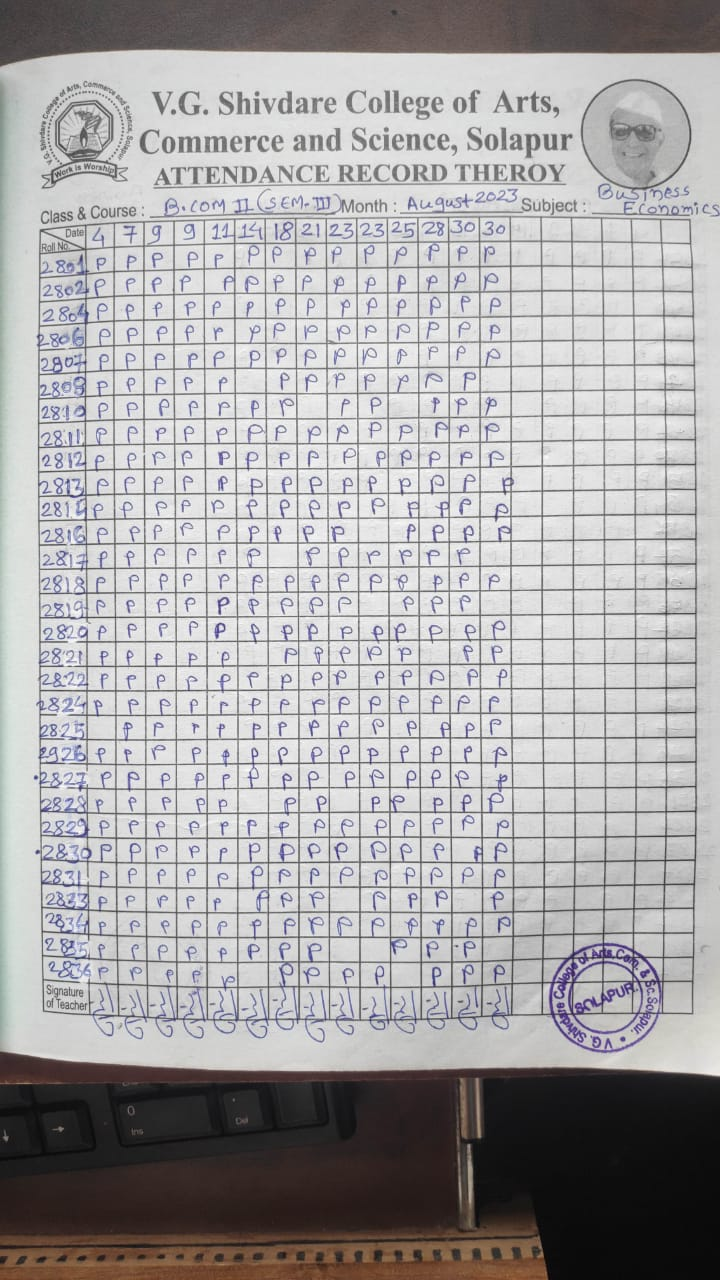 V.G. Shivdare College of Arts, Commerce and Science, Solapur
Work is Worship
V.G. Shivdare College of Arts,
Commerce and Science, Solapur
ATTENDANCE RECORD THEROY
Class & Course : B.COM II (SEM-III) Month : August 2023 Subject : Business Economics
Date 4 7 9 9 11 14 18 21 23 23 25 28 30 30
Roll No.
2801 P P P P P P P P P P P P P P
2802 P P P P P P P P P P P P P P
2804 P P P P P P P P P P P P P P
2806 P P P P P P P P P P P P P P
2807 P P P P P P P P P P P P P P
2808 P P P P P P P P P P P P
2810 P P P P P P P P P P P P
2811 P P P P P P P P P P P P P P
2812 P P P P P P P P P P P P P P
2813 P P P P P P P P P P P P P P
2814 P P P P P P P P P P P P P P
2816 P P P P P P P P P P P P P
2817 P P P P P P P P P P P P
2818 P P P P P P P P P P P P P P
2819 P P P P P P P P P P P P
2820 P P P P P P P P P P P P P P
2821 P P P P P P P P P P P P
2822 P P P P P P P P P P P P P P
2824 P P P P P P P P P P P P P P
2825 P P P P P P P P P P P P P
2926 P P P P P P P P P P P P P P
2827 P P P P P P P P P P P P P P
2828 P P P P P P P P P P P P
2829 P P P P P P P P P P P P P P
2830 P P P P P P P P P P P P P P
2831 P P P P P P P P P P P P P P
2833 P P P P P P P P P P P P
2834 P P P P P P P P P P P P P P
2835 P P P P P P P P P P P
2836 P P P P P P P P P P P P
Signature of Teacher
V.G. Shivdare College of Arts, Com. & Sc. Solapur.
SOLAPUR.
0
Ins
Del